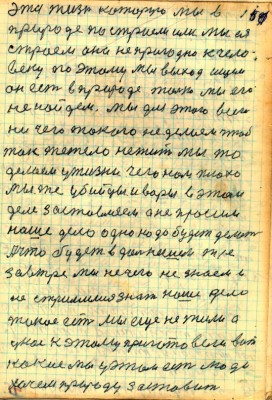 Эта жизнь которую мы в
природе построили или мы ея
строем она не пригодна к чело-
веку поэтому мы выход ищем
он есть в природе только мы его
не найдем. мы для этого всего
ничего такого не делаем чтоб
так тяжело не жить мы то
делаем у жизни чего нам плохо
мы же убийцы и воры в этом
деле заставляем а не просим
наше дело одно надо будет делать
А что будет в дальнейшем уже
завтра мы нечего не знаем и
не стремимся знать наше дело
такое есть мы еще не жили а
уже к этому приготовели вот
какие мы у этом есть люди
хочем природу заставить